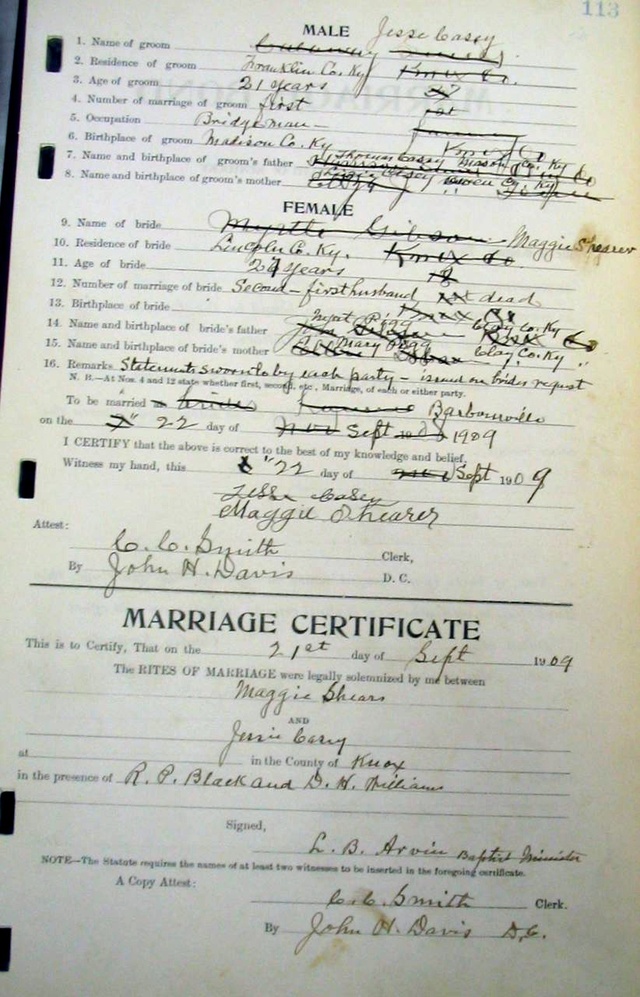 113
MALE Jesse Casey
1. Name of groom
2. Residence of groom Franklin Co. Ky Knox Co.
3. Age of groom 21 years
4. Number of marriage of groom first
5. Occupation Bridgeman
6. Birthplace of groom Madison Co. Ky
7. Name and birthplace of groom's father Thomas Casey Mason Co. Ky
8. Name and birthplace of groom's mother Casey Co. Ky
FEMALE
9. Name of bride Myrtle Gibson Maggie Shearer
10. Residence of bride Lincoln Co. Ky. Knox Co.
11. Age of bride years 18
12. Number of marriage of bride Second – first husband dead
13. Birthplace of bride
14. Name and birthplace of bride's father Clay Co. Ky
15. Name and birthplace of bride's mother Mary Clay Co. Ky
16. Remarks Statements sworn to by each party – issued on brides request
N. B.—At Nos. 4 and 12 state whether first, second, etc., Marriage, of each or either party.
To be married Barbourville
on the 22 day of Sept 1909
I CERTIFY that the above is correct to the best of my knowledge and belief.
Witness my hand, this "22 day of Sept 1909
Jesse Casey
Maggie Shearer
Attest:
C. C. Smith Clerk,
By John H. Davis D. C.
MARRIAGE CERTIFICATE
This is to Certify, That on the 21st day of Sept 1909
The RITES OF MARRIAGE were legally solemnized by me between
Maggie Shears
AND
Jessie Casey
at in the County of Knox
in the presence of R. P. Black and D. H. Williams
Signed,
L. B. Arvin Baptist Minister
NOTE—The Statute requires the names of at least two witnesses to be inserted in the foregoing certificate.
A Copy Attest:
C. C. Smith Clerk.
By John H. Davis D.C.